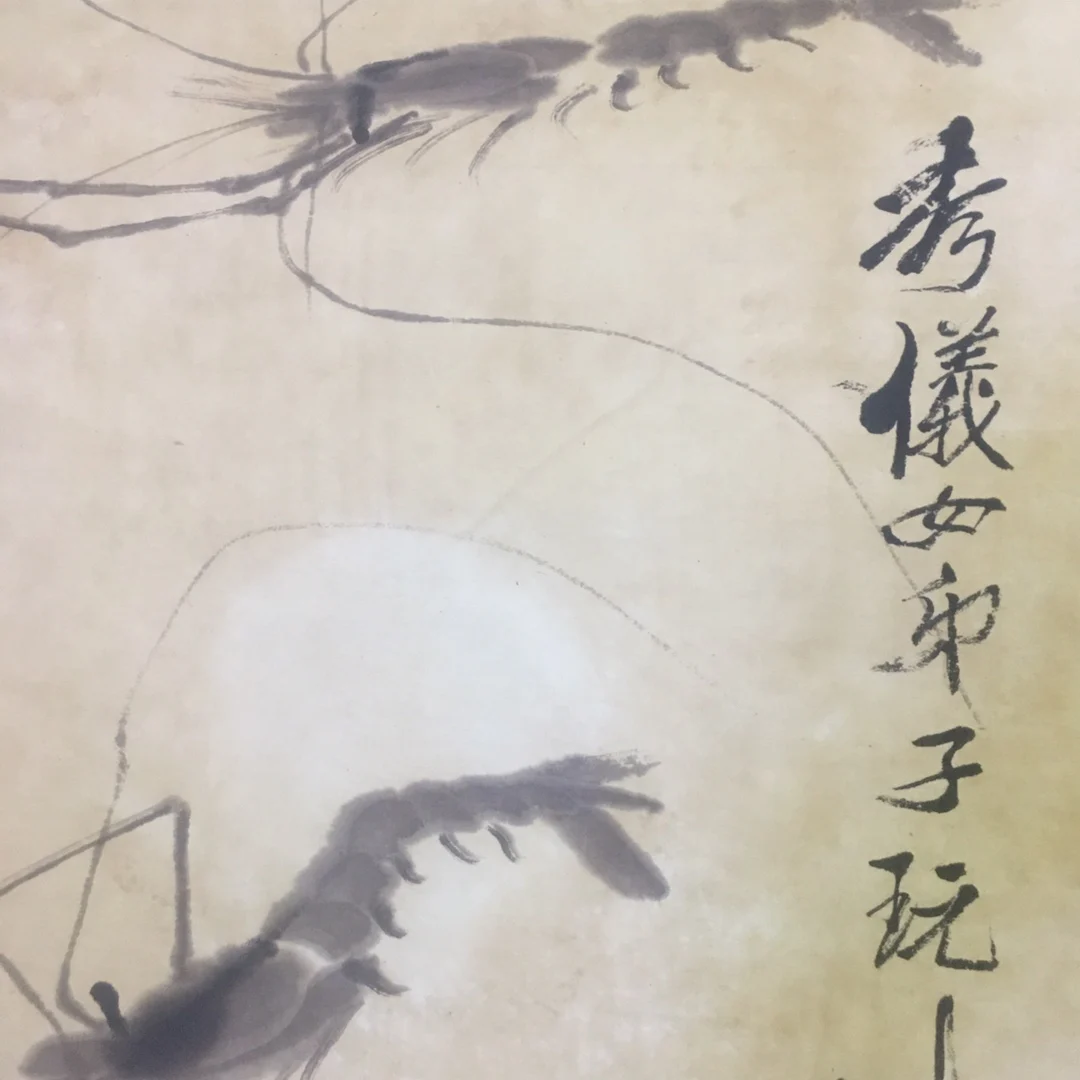 秀儀女弟子玩